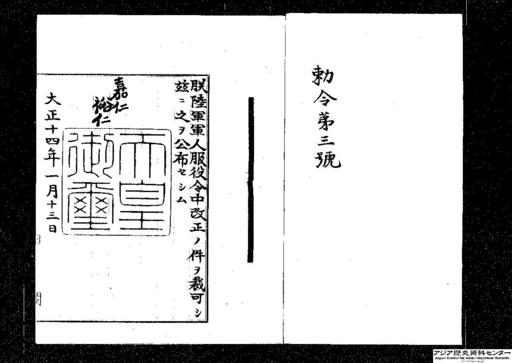 勅令第三號
朕陸軍軍人服役令中改正ノ件ヲ裁可シ
玆ニ之ヲ公布セシム
嘉仁
裕仁
天皇
御璽
大正十四年一月十三日
アジア歴史資料センター
Japan Center for Asian Historical Records